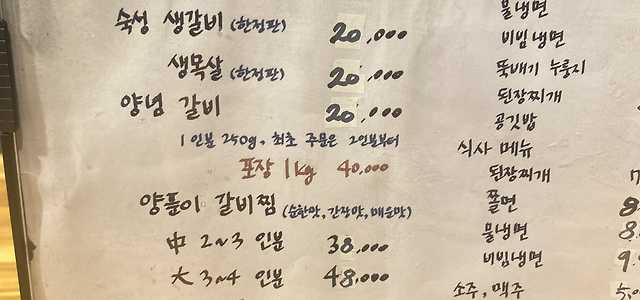 숙성 생갈비 (한정판) 20,000
생목살 (한정판) 20,000
양념 갈비 20,000
1인분 250g, 최초 주문은 2인분부터
포장 1kg 40,000
양푼이 갈비찜 (순한맛, 간장맛, 매운맛)
中 2~3 인분 38,000
大 3~4 인분 48,000
물냉면
비빔냉면
뚝배기 누룽지
된장찌개
공깃밥
식사 메뉴
된장찌개
쫄면
물냉면
비빔냉면
소주, 맥주